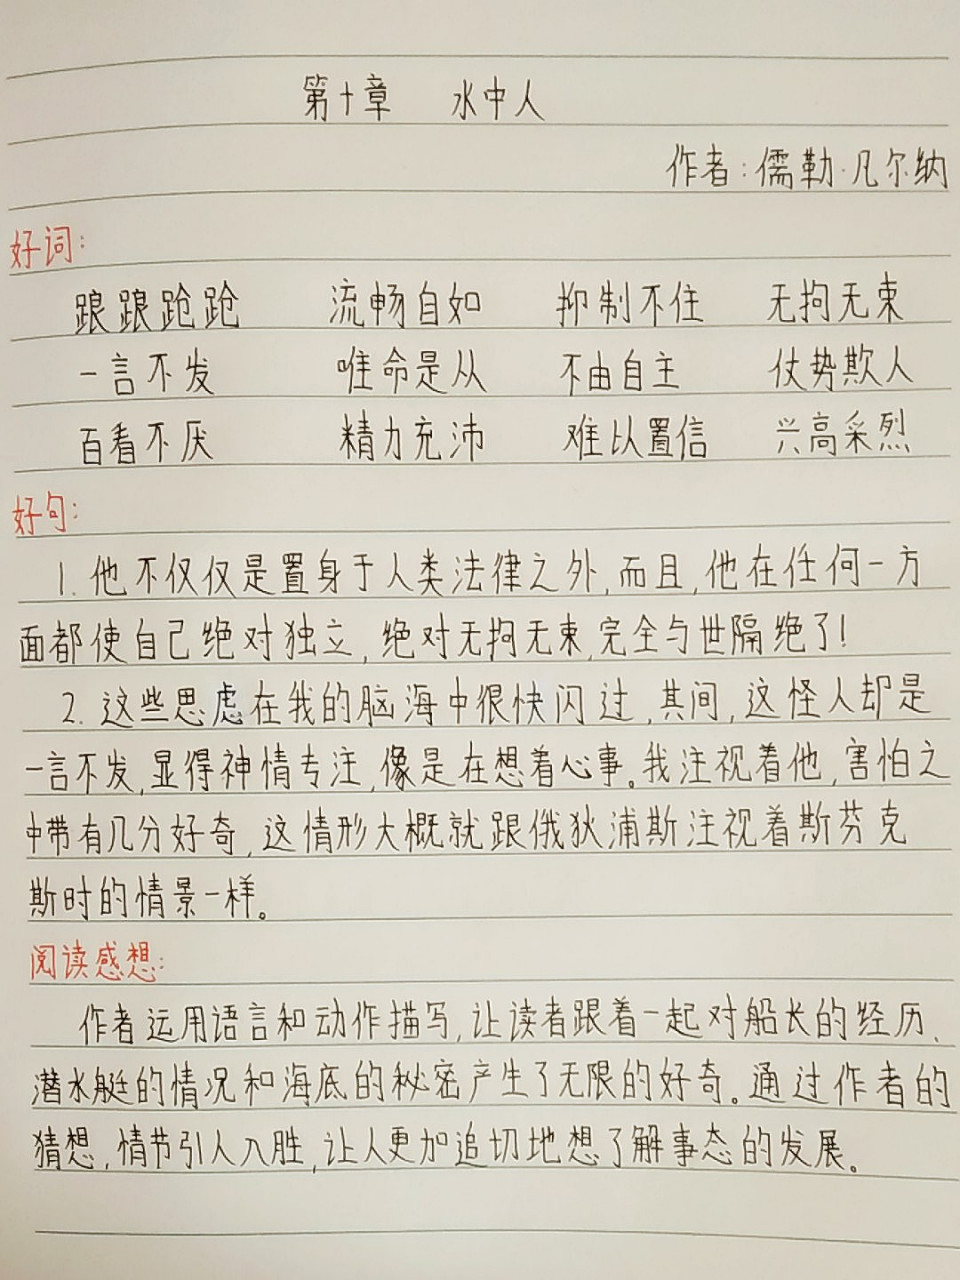 第十章 水中人
作者:儒勒·凡尔纳
好词:
踉踉跄跄 流畅自如 抑制不住 无拘无束
一言不发 唯命是从 不由自主 仗势欺人
百看不厌 精力充沛 难以置信 兴高采烈
好句:
1. 他不仅仅是置身于人类法律之外,而且,他在任何一方
面都使自己绝对独立,绝对无拘无束,完全与世隔绝了!
2. 这些思虑在我的脑海中很快闪过,其间,这怪人却是
一言不发,显得神情专注,像是在想着心事。我注视着他,害怕之
中带有几分好奇,这情形大概就跟俄狄浦斯注视着斯芬克
斯时的情景一样。
阅读感想:
作者运用语言和动作描写,让读者跟着一起对船长的经历、
潜水艇的情况和海底的秘密产生了无限的好奇。通过作者的
猜想,情节引人入胜,让人更加追切地想了解事态的发展。